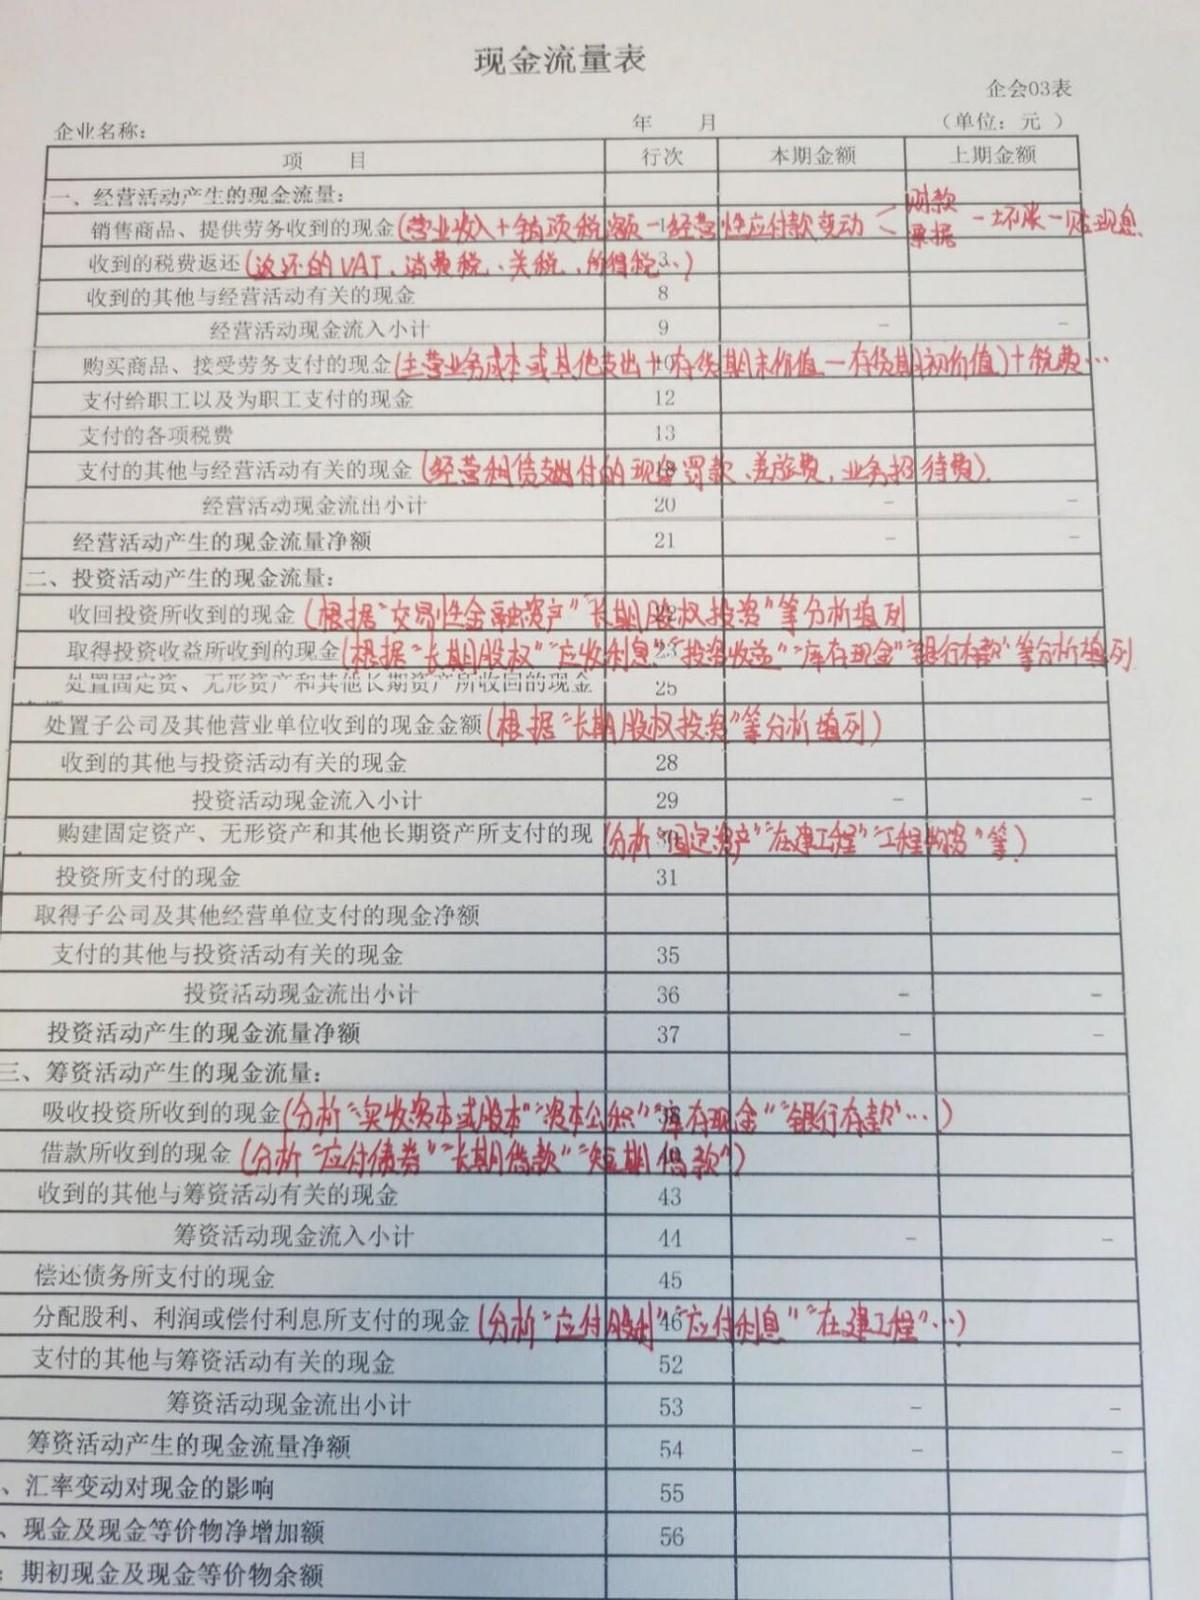 现金流量表
企会03表
企业名称： 年 月 （单位：元 ）
项 目 行次 本期金额 上期金额
一、经营活动产生的现金流量：
销售商品、提供劳务收到的现金(营业收入+销项税额-经营性应付款变动 < 账款 票据 -坏账-贴现息
收到的税费返还(返还的VAT、消费税、关税、所得税..) 3
收到的其他与经营活动有关的现金 8
经营活动现金流入小计 9 - -
购买商品、接受劳务支付的现金(主营业务成本或其他支出+(存货期末价值-存货期初价值)+税费…
支付给职工以及为职工支付的现金 12
支付的各项税费 13
支付的其他与经营活动有关的现金(经营租赁支付的现金罚款、差旅费,业务招待费).
经营活动现金流出小计 20 - -
经营活动产生的现金流量净额 21 - -
二、投资活动产生的现金流量：
收回投资所收到的现金(根据“交易性金融资产”“长期股权投资”等分析填列
取得投资收益所收到的现金(根据“长期股权”“应收利息”23“投资收益”“库存现金”“银行存款”等分析填列
处置固定资、无形资产和其他长期资产所收回的现金 25
处置子公司及其他营业单位收到的现金金额(根据“长期股权投资”等分析填列)
收到的其他与投资活动有关的现金 28
投资活动现金流入小计 29 - -
购建固定资产、无形资产和其他长期资产所支付的现 30 (分析“固定资产”“在建工程”“工程物资”等)
投资所支付的现金 31
取得子公司及其他经营单位支付的现金净额
支付的其他与投资活动有关的现金 35
投资活动现金流出小计 36 - -
投资活动产生的现金流量净额 37 - -
三、筹资活动产生的现金流量：
吸收投资所收到的现金(分析“实收资本或股本”“资本公积”38“库存现金”“银行存款”…)
借款所收到的现金(分析“应付债券”“长期借款”“短期借款”)
收到的其他与筹资活动有关的现金 43
筹资活动现金流入小计 44 - -
偿还债务所支付的现金 45
分配股利、利润或偿付利息所支付的现金(分析“应付股利”46“应付利息”“在建工程”…)
支付的其他与筹资活动有关的现金 52
筹资活动现金流出小计 53 - -
筹资活动产生的现金流量净额 54 - -
、汇率变动对现金的影响 55
、现金及现金等价物净增加额 56
：期初现金及现金等价物余额